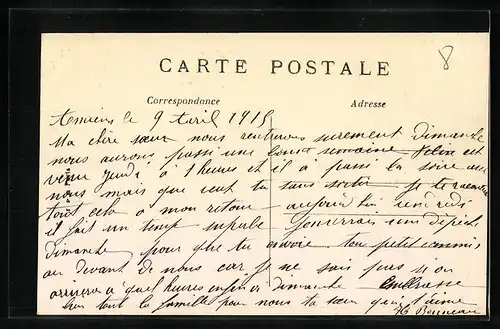 8
CARTE POSTALE
Correspondance Adresse
Amiens le 9 Avril 1915
Ma chère sœur nous rentrerons surement dimanche
nous aurons passé une semaine Félix est
venu jeudi à 1 heures et il a passé la soire avec
nous mais que veut tu sans sortir je te raconterai
tout cela a mon retour aujourd'hui vendredi
il fait un temp
dimanche pour que tu envoie ton petit commis
au devant de nous car je ne sais pas si on
arrivera à quel heures enfin à dimanche Embrasse
bien tout la famille pour nous ta sœur qui t'aime